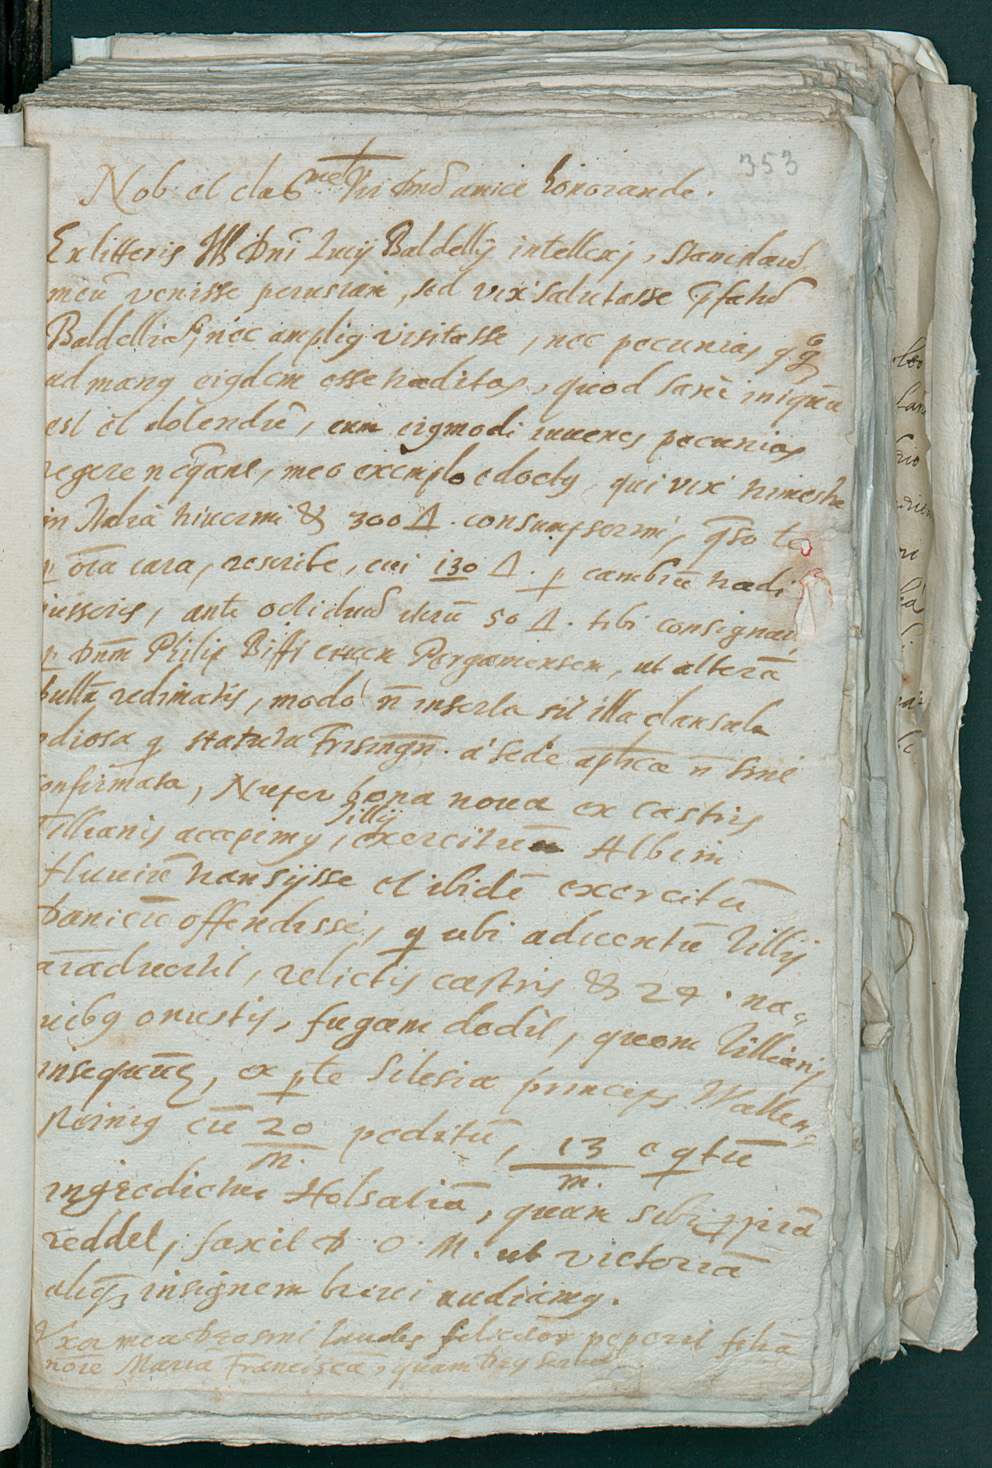 353
Nob et cla^me Vir dnē amice honorande.
Ex litteris Ill Dni Lucij Baldellij intellexj, Stanislaū
meū venisse perusiam, sed vix salutasse pfatū
Baldelliū, nec ampliq visitasse, nec pecunias
ad manq eiqdem esse traditas, quod sanè iniquū
est et dolendū, cum eiqmodi iuuenes pecunias
regere neqant, meo exemplo edoctq, qui vix trimestre
in Italiā hiuerni & 300 Δ. consumpserim, qso te
p oīa cara, rescribe, cui 130 Δ. p cambiū tradi
iusseris, ante octiduū iterū 50 Δ. tibi consignaui
p Dnm Philip Biffi Pergamensem, ut alterā
bullā redimatis, modò n̄ inserta sit illa clausula
odiosa q statuta Frisingn. à sede aplica n̄ sint
confirmata, Nuper bona noua ex castris
Tillianis accepimq, Tillij exercitum Albim
fluuiū transijsse et ibidē exercitū
Danicū offendisse, q ubi aduentū Tillij
aīaduertit, relictis castris & 24 . na-
uibq onustis, fugam dedit, quem Tilliani
insequūt, ex pte Silesiæ princeps Wallen-
steiniq cū 20/m. peditū, 13/m. eqtū
ingredietur Holsatiā, quam sibi ppriā
reddet, faxit D. O. M. ut victoriā
aliqā insignem breui audiamq.
Vxor mea Deo sint laudes feliciter peperit filiā
noīe Maria Franciscā, quam Deq seruet